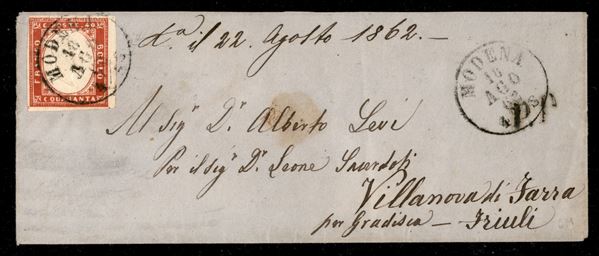 C. POSTE. 40
FRANCO
BOLLO
C. QUARANTA
MODENA
18
AGO
il 22 Agosto 1862.—
MODENA
18
AGO
Al Sigr Dr Alberto Levi
Per il sigr Dr Leone Sacerdoti
Villanova di Farra
per Gradisca — Friuli